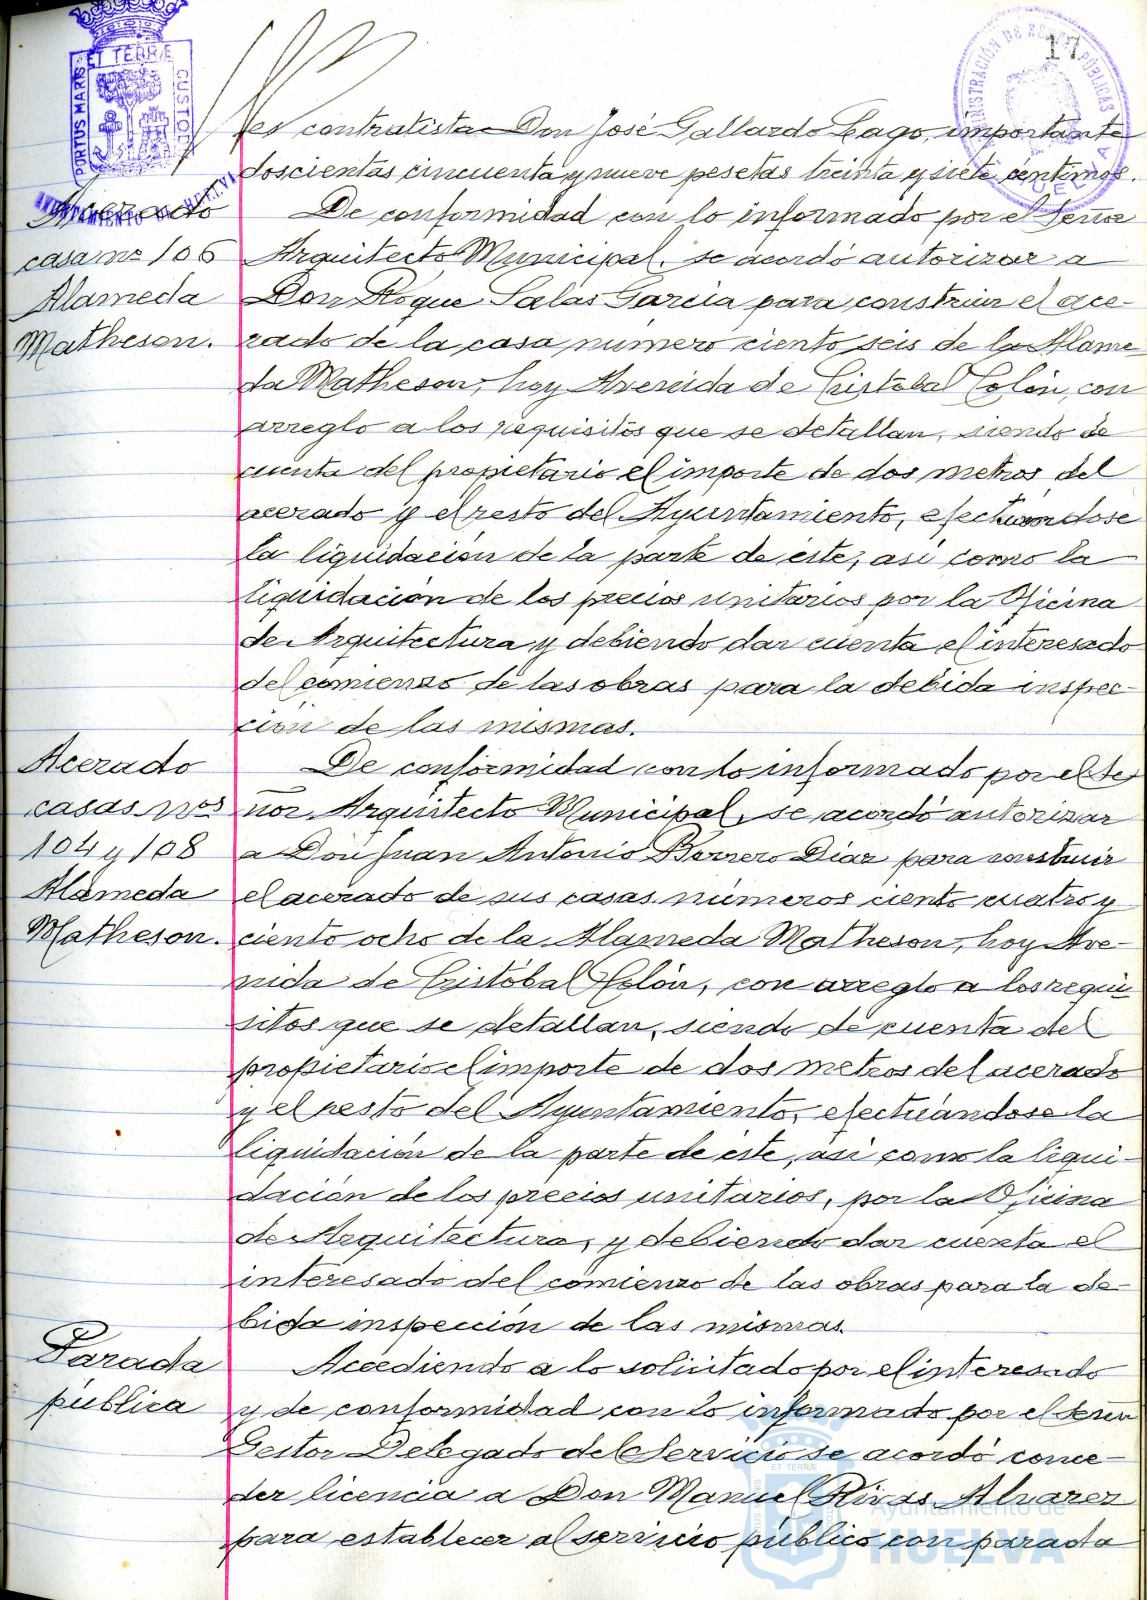 17
PORTUS MARIS ET TERRÆ CUSTODI
AYUNTAMIENTO DE HUELVA
ADMINISTRACIÓN DE RENTAS PÚBLICAS
HUELVA
es contratista Don José Gallardo Lago, importante
doscientas cincuenta y nueve pesetas treinta y siete céntimos.
Acerado
casa nº 106
Alameda
Matheson.
De conformidad con lo informado por el Señor
Arquitecto Municipal, se acordó autorizar a
Don Roque Salas García para construir el ace-
rado de la casa numero ciento seis de la Alame
da Matheson, hoy Avenida de Cristóbal Colón, con
arreglo a los requisitos que se detallan, siendo de
cuenta del propietario el importe de dos metros del
acerado y el resto del Ayuntamiento, efectuándose
la liquidación de la parte de éste, así como la
liquidación de los precios unitarios por la Oficina
de Arquitectura y debiendo dar cuenta el interesado
del comienzo de las obras para la debida inspec-
ción de las mismas.
Acerado
casas nos
104 y 108
Alameda
Matheson.
De conformidad con lo informado por el Se
ñor Arquitecto Municipal, se acordó autorizar
a Don Juan Antonio Borrero Díaz para construir
el acerado de sus casas números ciento cuatro y
ciento ocho de la Alameda Matheson, hoy Ave-
nida de Cristóbal Colón, con arreglo a los requi
sitos que se detallan, siendo de cuenta del
propietario el importe de dos metros del acerado
y el resto del Ayuntamiento, efectuándose la
liquidación de la parte de éste, así como la liqui-
dación de los precios unitarios, por la Oficina
de Arquitectura, y debiendo dar cuenta el
interesado del comienzo de las obras para la de-
bida inspección de las mismas.
Parada
pública
Accediendo a lo solicitado por el interesado
y de conformidad con lo informado por el Señor
Gestor Delegado del Servicio se acordó conce-
der licencia a Don Manuel Rivas Alvarez
para establecer al servicio público con parada
Ayuntamiento de
HUELVA